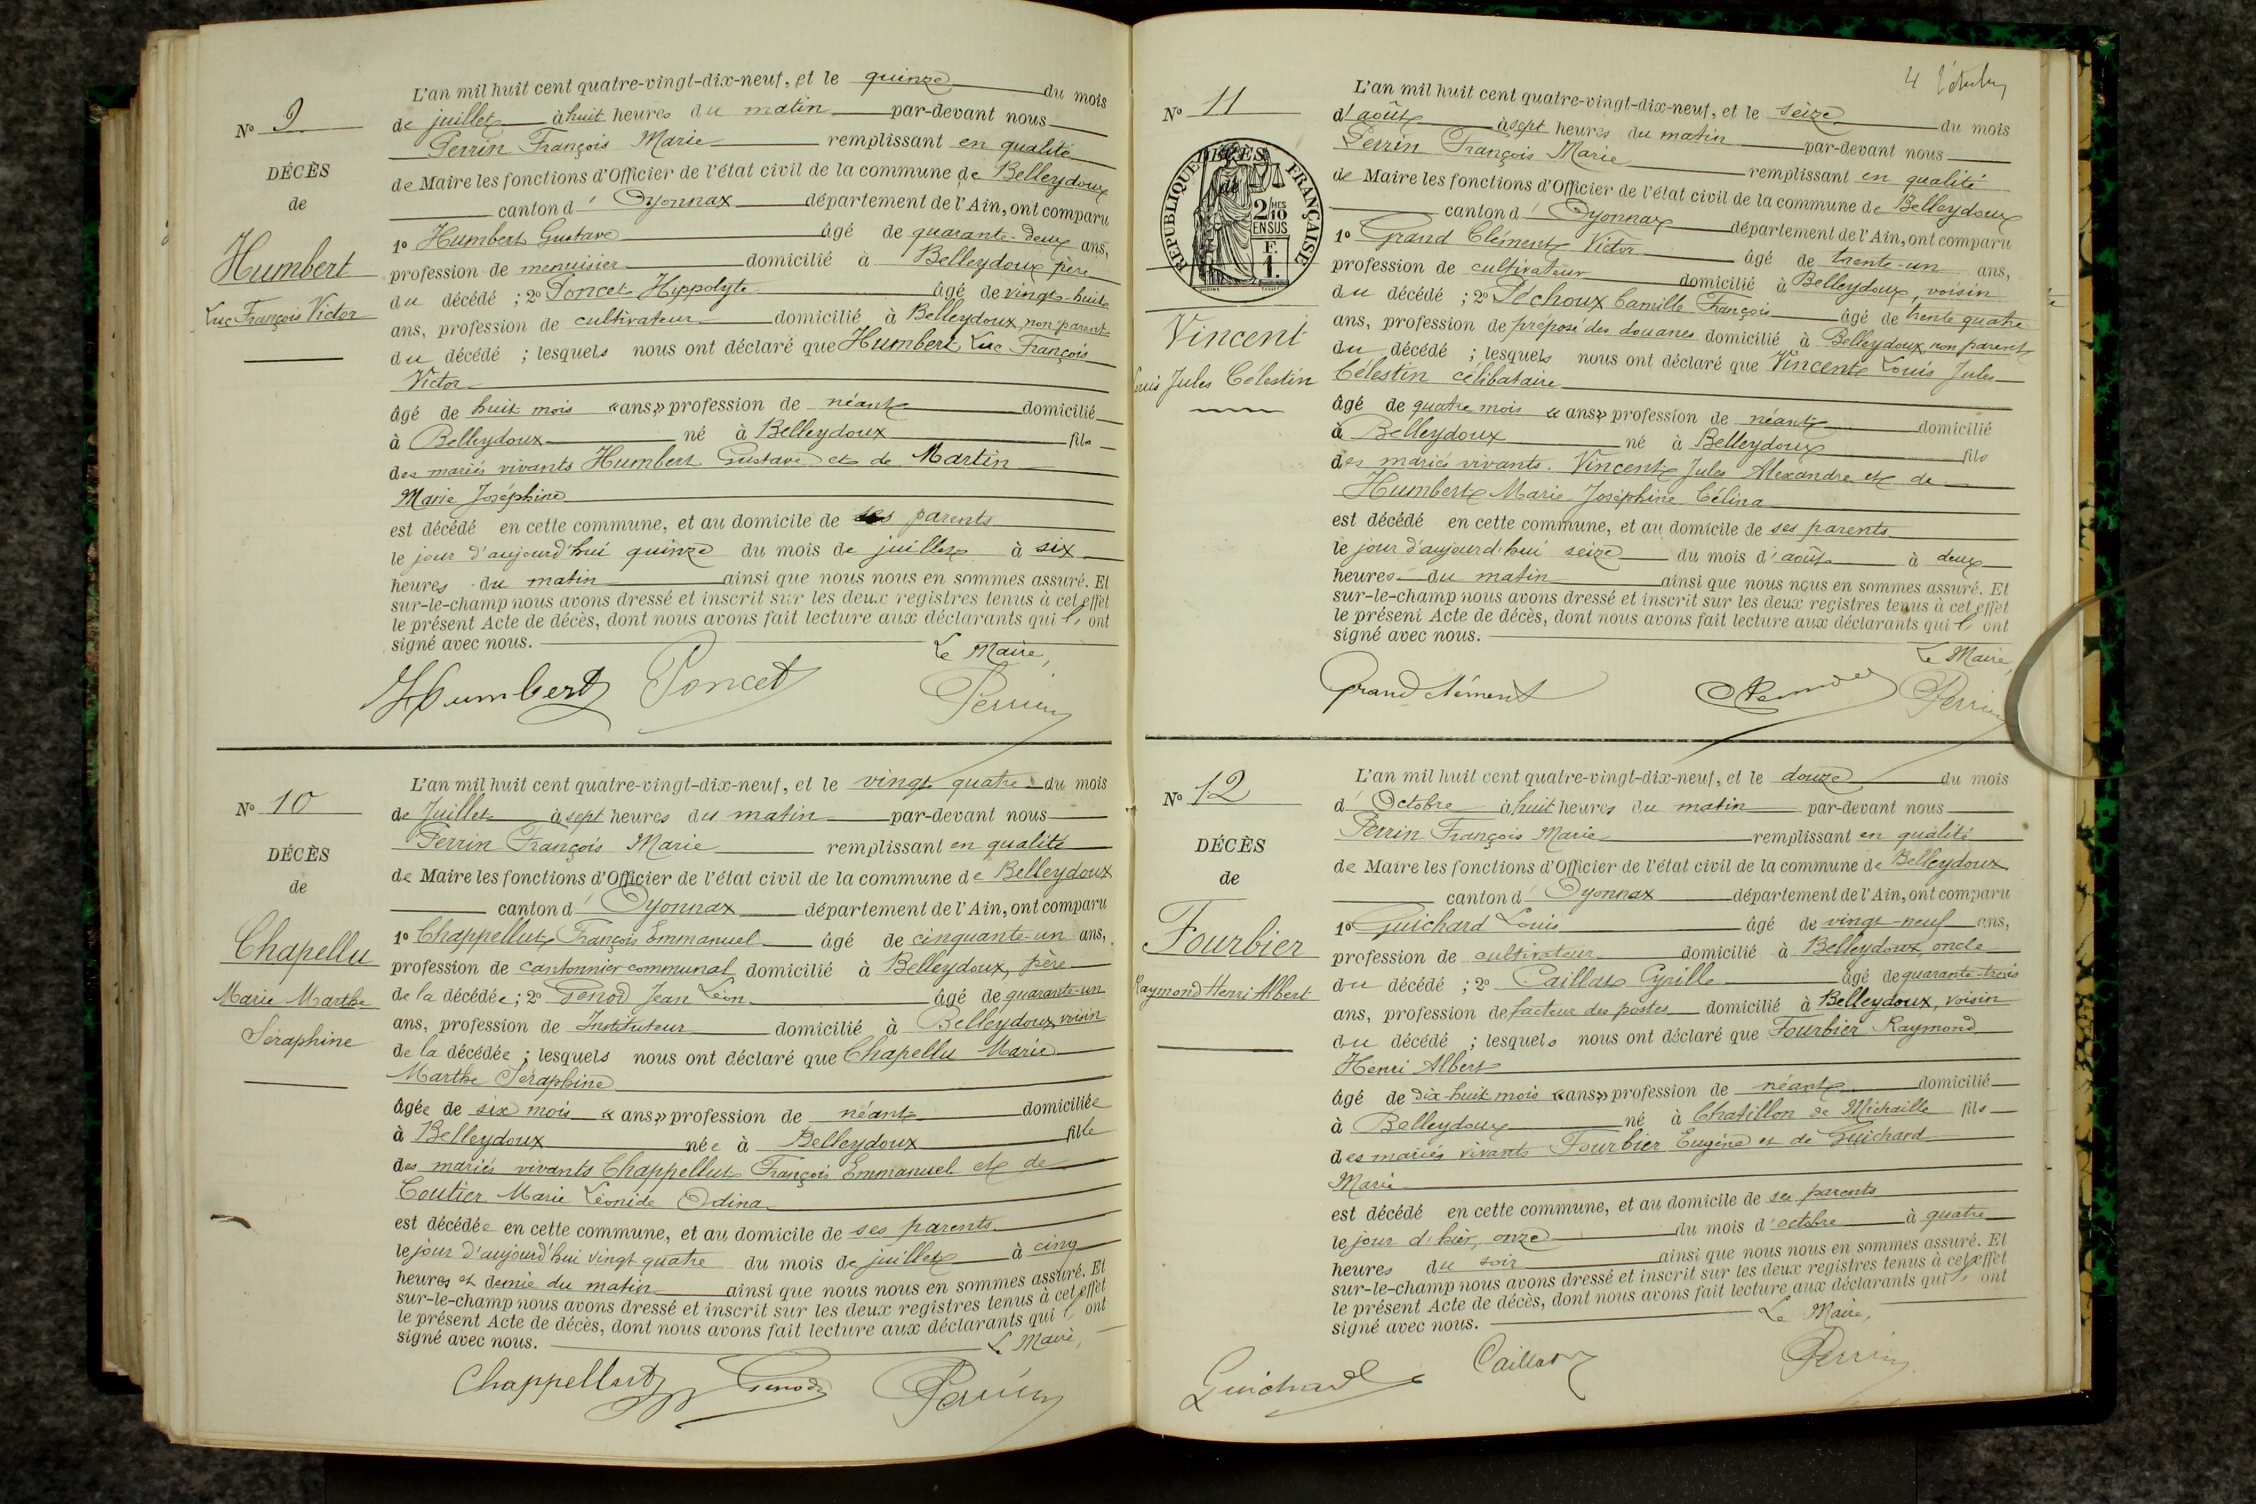 L'an mil huit cent quatre-vingt-dix-neuf, et le quinze du mois
de juillet à huit heures du matin par-devant nous
Perrin François Marie remplissant en qualité
de Maire les fonctions d'Officier de l'état civil de la commune de Belleydoux
canton d' Oyonnax département de l'Ain, ont comparu
1º Humbert Gustave âgé de quarante-deux ans,
profession de menuisier domicilié à Belleydoux père
du décédé ; 2º Poncet Hippolyte âgé de vingt-huit
ans, profession de cultivateur domicilié à Belleydoux, non parent
du décédé ; lesquels nous ont déclaré que Humbert Luc François
Victor
âgé de huit mois « ans » profession de néant domicilié
à Belleydoux né à Belleydoux fils
des mariés vivants Humbert Gustave et de Martin
Marie Joséphine
est décédé en cette commune, et au domicile de ses parents
le jour d'aujourd'hui quinze du mois de juillet à six
heures du matin ainsi que nous nous en sommes assuré. Et
sur-le-champ nous avons dressé et inscrit sur les deux registres tenus à cet effet
le présent Acte de décès, dont nous avons fait lecture aux déclarants qui l' ont
signé avec nous.
Le Maire,
Humbert Poncet Perrin
Nº 9
DÉCÈS
de
Humbert
Luc François Victor
L'an mil huit cent quatre-vingt-dix-neuf, et le vingt quatre du mois
de Juillet à sept heures du matin par-devant nous
Perrin François Marie remplissant en qualité
de Maire les fonctions d'Officier de l'état civil de la commune de Belleydoux
canton d' Oyonnax département de l'Ain, ont comparu
1º Chappellut François Emmanuel âgé de cinquante-un ans,
profession de cantonnier communal domicilié à Belleydoux, père
de la décédée ; 2º Genod Jean Léon âgé de quarante-un
ans, profession de Instituteur domicilié à Belleydoux, voisin
de la décédée ; lesquels nous ont déclaré que Chapellu Marie
Marthe Séraphine
âgée de six mois « ans » profession de néant domiciliée
à Belleydoux née à Belleydoux fille
des mariés vivants Chappellut François Emmanuel et de
Coutier Marie Léonide Odina
est décédée en cette commune, et au domicile de ses parents
le jour d'aujourd'hui vingt quatre du mois de juillet à cinq
heures et demie du matin ainsi que nous nous en sommes assuré. Et
sur-le-champ nous avons dressé et inscrit sur les deux registres tenus à cet effet
le présent Acte de décès, dont nous avons fait lecture aux déclarants qui l' ont
signé avec nous.
Le Maire,
Chappellut Genod Perrin
Nº 10
DÉCÈS
de
Chapellu
Marie Marthe
Séraphine
4
L'an mil huit cent quatre-vingt-dix-neuf, et le seize du mois
d'août à sept heures du matin par-devant nous
Perrin François Marie remplissant en qualité
de Maire les fonctions d'Officier de l'état civil de la commune de Belleydoux
canton d' Oyonnax département de l'Ain, ont comparu
1º Grand Clément Victor âgé de trente-un ans,
profession de cultivateur domicilié à Belleydoux, voisin
du décédé ; 2º Péchoux Camille François âgé de trente quatre
ans, profession de préposé des douanes domicilié à Belleydoux, non parent
du décédé ; lesquels nous ont déclaré que Vincent Louis Jules
Célestin célibataire
âgé de quatre mois « ans » profession de néant domicilié
à Belleydoux né à Belleydoux fils
des mariés vivants Vincent Jules Alexandre et de
Humbert Marie Joséphine Célina
est décédé en cette commune, et au domicile de ses parents
le jour d'aujourd'hui seize du mois d'août à deux
heures du matin ainsi que nous nous en sommes assuré. Et
sur-le-champ nous avons dressé et inscrit sur les deux registres tenus à cet effet
le présent Acte de décès, dont nous avons fait lecture aux déclarants qui l' ont
signé avec nous.
Le Maire,
Grand Clément Perrin
Nº 11
DÉCÈS
de
RÉPUBLIQUE FRANÇAISE
2/10 MES
EN SUS
F.
1.
Vincent
Louis Jules Célestin
L'an mil huit cent quatre-vingt-dix-neuf, et le douze du mois
d' Octobre à huit heures du matin par-devant nous
Perrin François Marie remplissant en qualité
de Maire les fonctions d'Officier de l'état civil de la commune de Belleydoux
canton d' Oyonnax département de l'Ain, ont comparu
1º Guichard Louis âgé de vingt-neuf ans,
profession de cultivateur domicilié à Belleydoux, oncle
du décédé ; 2º Caillat Cyrille âgé de quarante-trois
ans, profession de facteur des postes domicilié à Belleydoux, voisin
du décédé ; lesquels nous ont déclaré que Fourbier Raymond
Henri Albert
âgé de dix-huit mois « ans » profession de néant domicilié
à Belleydoux né à Chatillon de Michaille fils
des mariés vivants Fourbier Eugène et de Guichard
Marie
est décédé en cette commune, et au domicile de ses parents
le jour d'hier, onze du mois d'octobre à quatre
heures du soir ainsi que nous nous en sommes assuré. Et
sur-le-champ nous avons dressé et inscrit sur les deux registres tenus à cet effet
le présent Acte de décès, dont nous avons fait lecture aux déclarants qui l' ont
signé avec nous.
Le Maire,
Guichard Caillat Perrin
Nº 12
DÉCÈS
de
Fourbier
Raymond Henri Albert